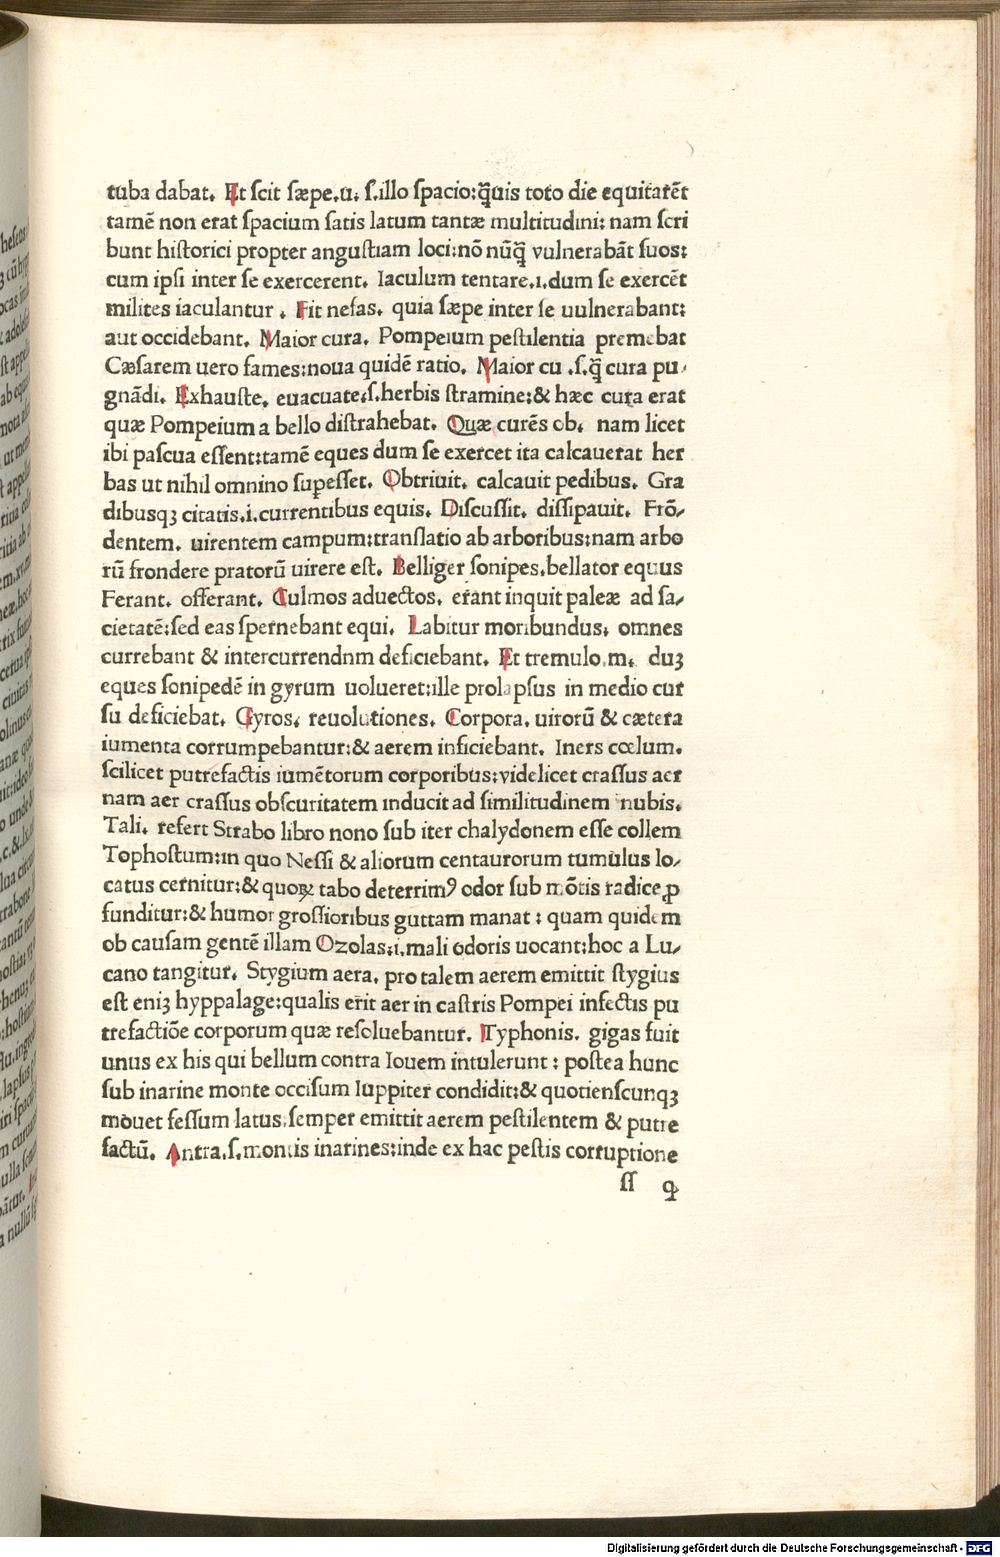 tuba dabat. Et ſcit ſæpe.u. ſ.illo ſpacio:q̃uis toto die equitarẽt
tamẽ non erat ſpacium ſatis latum tantæ multitudini: nam ſcri
bunt hiſtorici propter anguſtiam loci:nõ nũq̃ vulnerabãt ſuos:
cum ipſi inter ſe exercerent. Iaculum tentare.i.dum ſe exercẽt
milites iaculantur . Fit nefas. quia ſæpe inter ſe uulnerabant:
aut occidebant. Maior cura. Pompeium peſtilentia premebat
Cæſarem uero fames:noua quidẽ ratio. Maior cu .ſ.q̃ cura pu-
gnãdi. Exhauſte. euacuate:ſ.herbis ſtramine:& hæc cura erat
quæ Pompeium a bello diſtrahebat. Quæ curẽs ob. nam licet
ibi paſcua eſſent:tamẽ eques dum ſe exercet ita calcauerat her
bas ut nihil omnino ſuꝑeſſet. Obtriuit. calcauit pedibus. Gra
dibusqꝫ citatis.i.currentibus equis. Diſcuſſit. diſſipauit. Frõ-
dentem. uirentem campum:tranſlatio ab arboribus:nam arbo
rũ frondere pratorũ uirere eſt. Belliger ſonipes.bellator equus
Ferant. offerant. Culmos aduectos. erant inquit paleæ ad ſa-
cietatẽ:ſed eas ſpernebant equi. Labitur moribundus. omnes
currebant & intercurrendnm deficiebant. Et tremulo.m. duꝫ
eques ſonipedẽ in gyrum uolueret:ille prolapſus in medio cur
ſu deficiebat. Gyros. reuolutiones. Corpora. uirorũ & cætera
iumenta corrumpebantur:& aerem inficiebant. Iners cœlum.
ſcilicet putrefactis iumẽtorum corporibus:videlicet craſſus aer
nam aer craſſus obſcuritatem inducit ad ſimilitudinem nubis.
Tali. refert Strabo libro nono ſub iter chalydonem eſſe collem
Tophoſtum:in quo Neſſi & aliorum centaurorum tumulus lo-
catus cernitur:& quoꝝ tabo deterrimꝰ odor ſub mõtis radice ꝓ
funditur:& humor groſſioribus guttam manat : quam quidem
ob cauſam gentẽ illam Ozolas:i.mali odoris uocant:hoc a Lu-
cano tangitur. Stygium aera. pro talem aerem emittit ſtygius
eſt eniꝫ hyppalage:qualis erit aer in caſtris Pompei infectis pu
trefactiõe corporum quæ reſoluebantur. Typhonis. gigas fuit
unus ex his qui bellum contra Iouem intulerunt : poſtea hunc
ſub inarine monte occiſum Iuppiter condidit:& quotienſcunqꝫ
mouet feſſum latus.ſemper emittit aerem peſtilentem & putre
factũ. Antra.ſ.montis inarines:inde ex hac peſtis corruptione
ſſ ꝙ
Digitalisierung gefördert durch die Deutsche Forschungsgemeinschaft - DFG